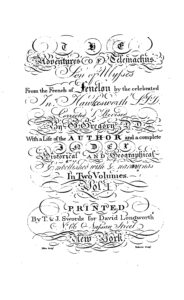 THE
Adventures OF Telemachus
Son of Ulysses
From the French of Fenelon by the celebrated
Jn. Hawkesworth L.L.D.
Corrected & Revised
By G. Gregory D.D.
With a Life of the AUTHOR and a complete
INDEX
Historical AND Geographical
Embellished with
In Two Volumes.
Vol. 1
PRINTED
By T & J. Swords for David Longworth
Nassau Street
New York